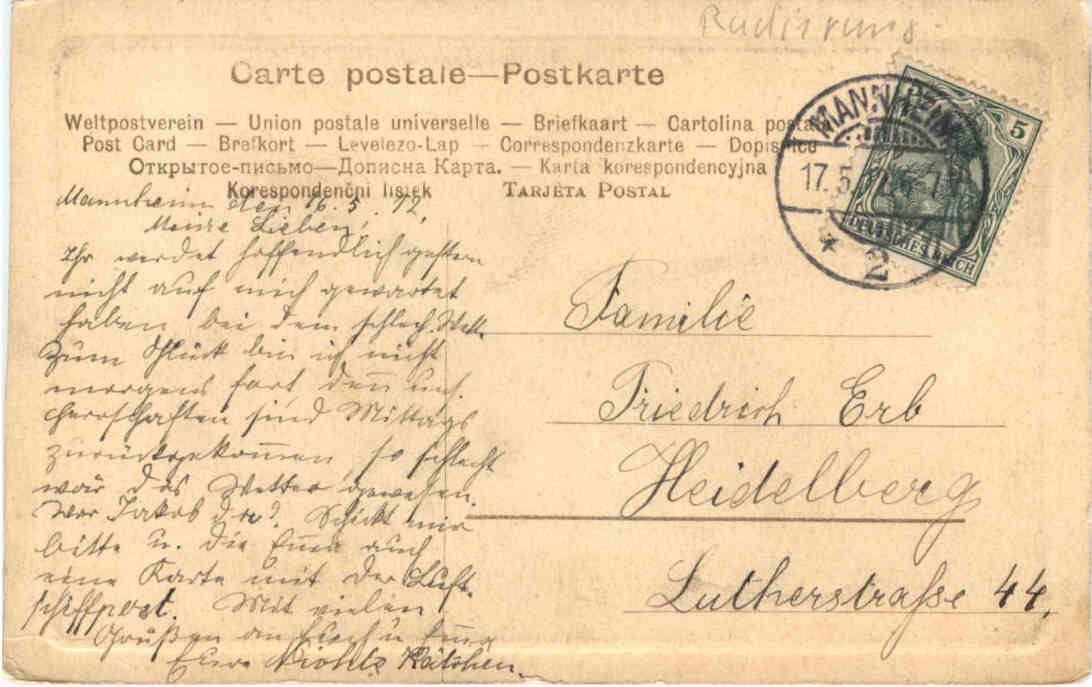 Radierung.
Carte postale—Postkarte
Weltpostverein — Union postale universelle — Briefkaart — Cartolina postale
Post Card — Brefkort — Levelezo-Lap — Correspondenzkarte — Dopisnice
Открытое-письмо—Дописна Карта. — Karta korespondencyjna
Korespondenčni listek TARJETA POSTAL
MANNHEIM
17.5.12
* 2
5
DEUTSCHES REICH
Mannheim den 16.5.12.
Meine Lieben!
Ihr werdet hoffendlich gestern
nicht auf mich gewartet
haben bei dem schlech. Wett.
Zum Glück bin ich nicht
morgens fort den̄ uns.
Herrschaften sind Mittags
zurückgekom̄en so schlecht
wär das Wetter gewesen.
War Jakob da? Schickt mir
bitte u. die auch
eine Karte mit der Luft-
schiffpost. Mit vielen
Grüßen an Euch u
Eure Käthchen.
Familie
Friedrich Erb
Heidelberg
Lutherstraße 44.